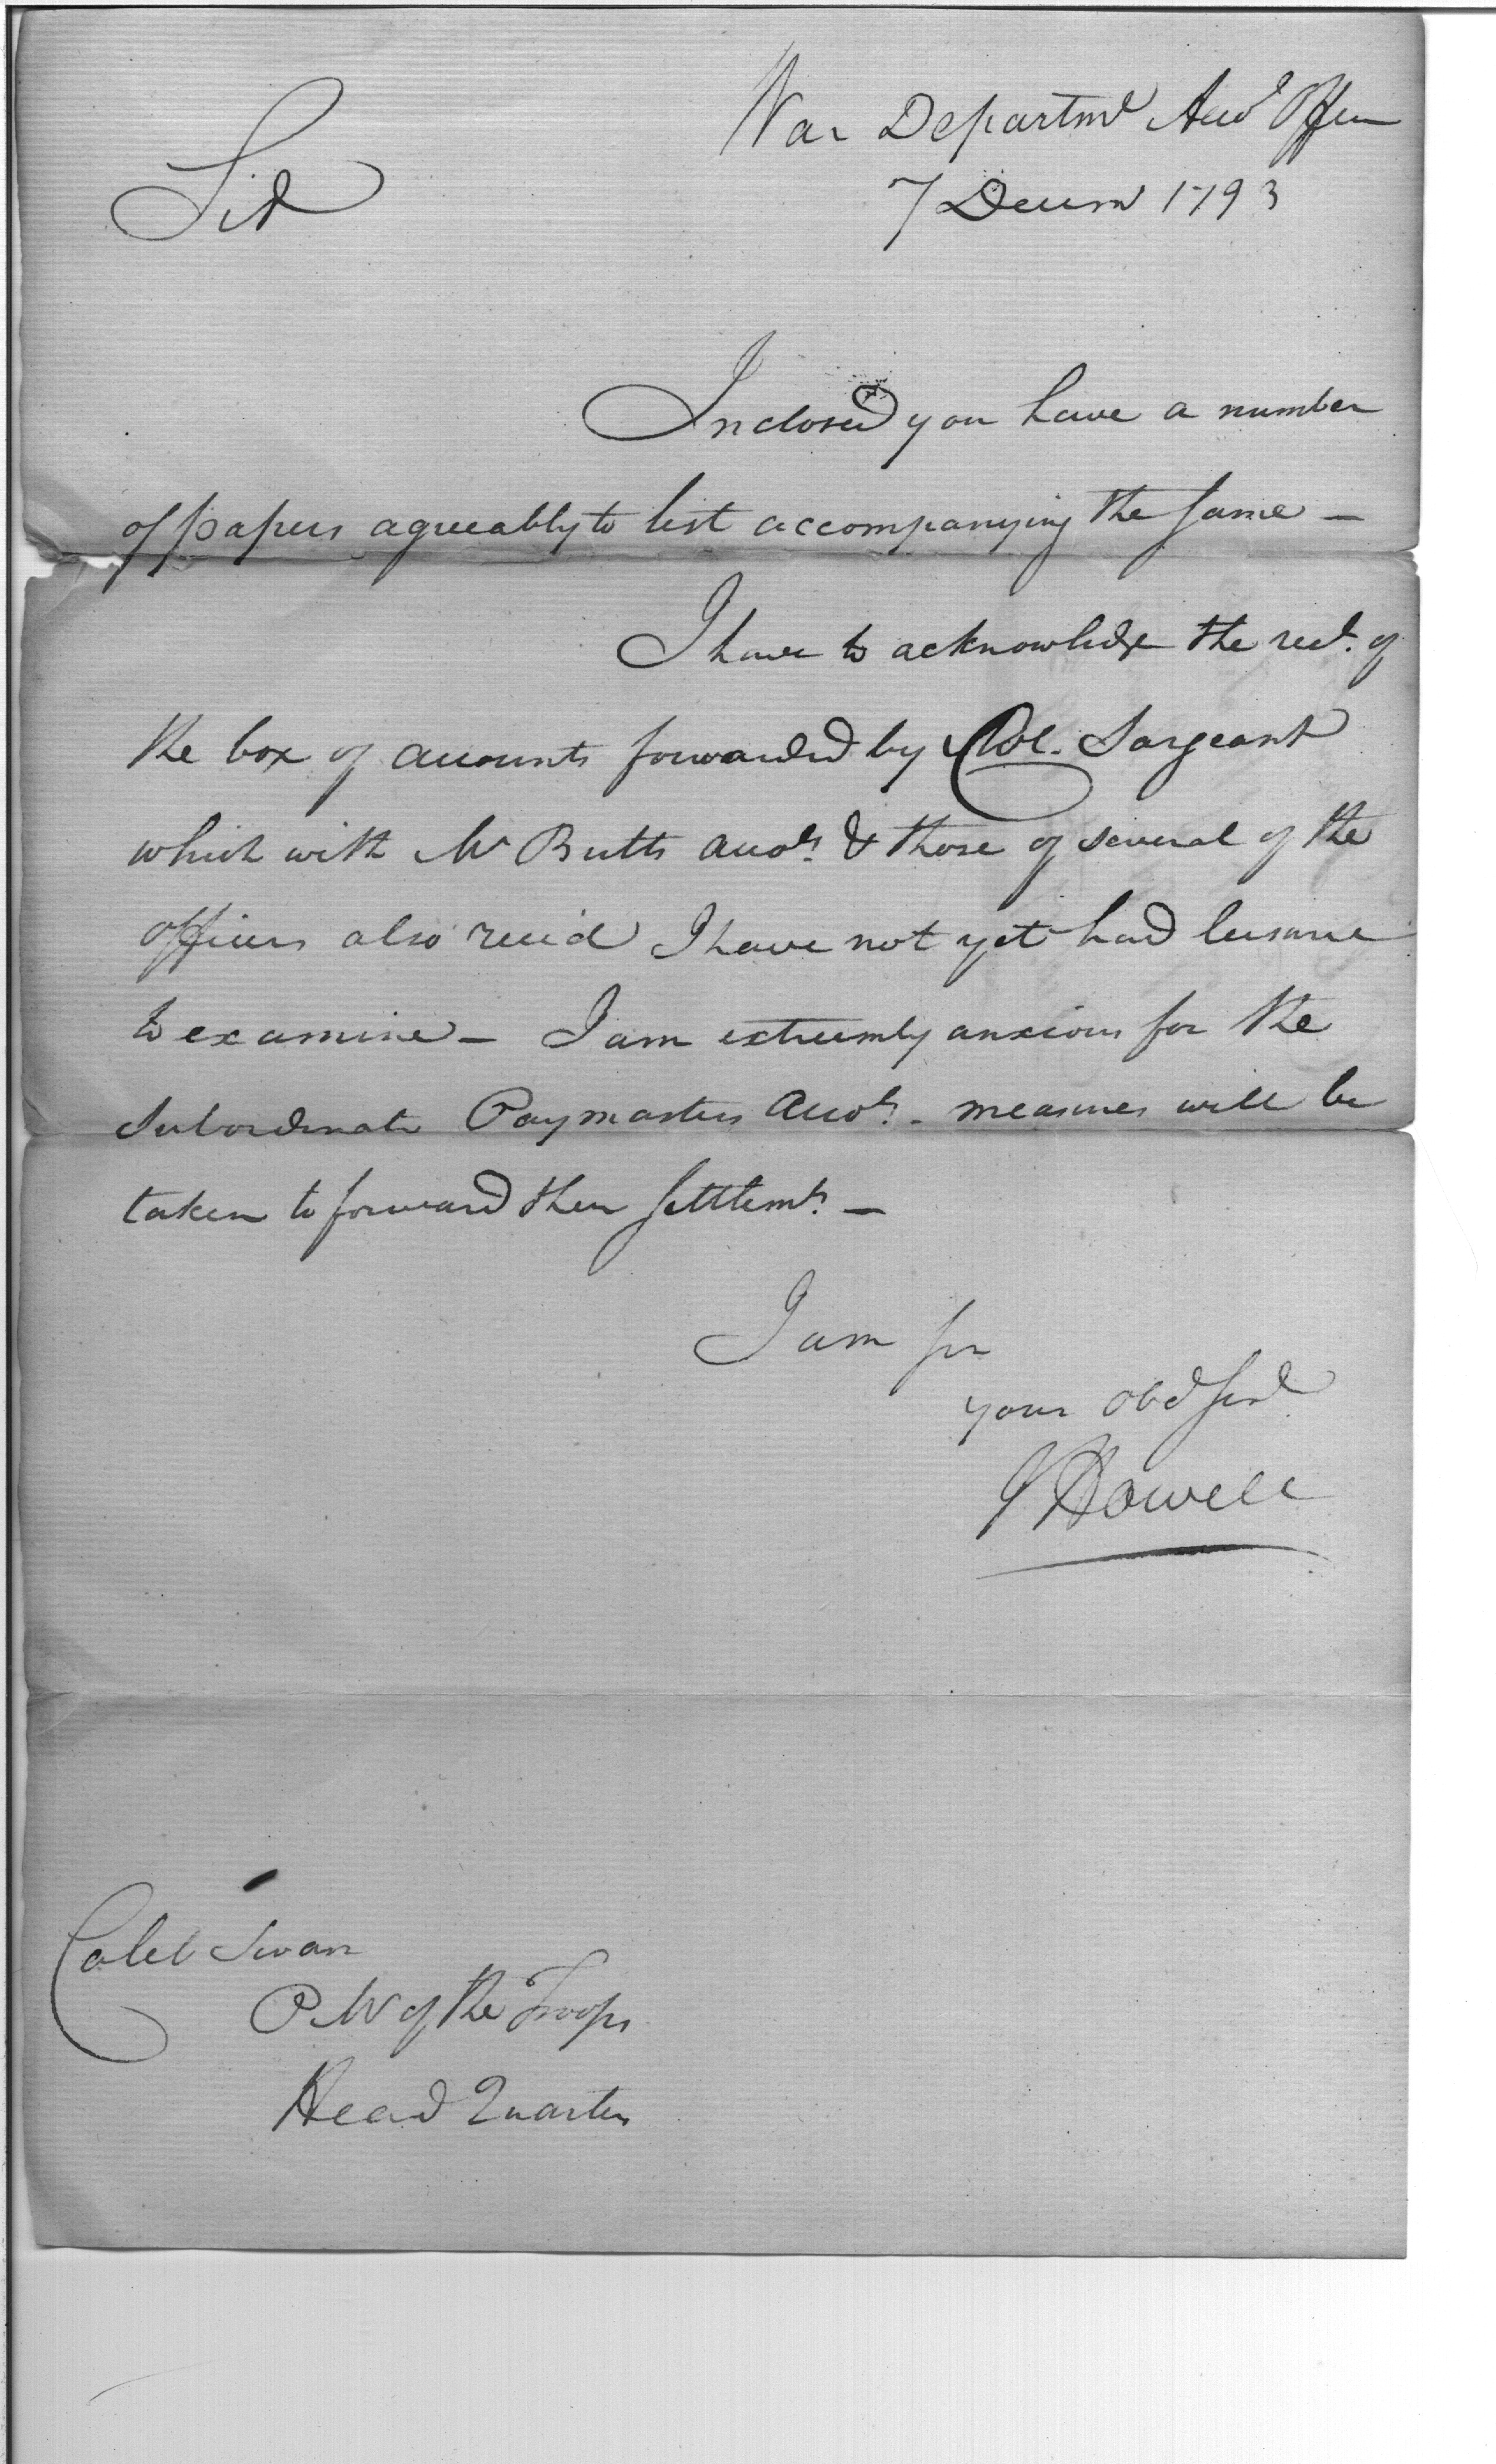 War Departmt Acco Office
Sir
7 Decem 1793
Inclosed you have a number
of papers agreeably to list accompanying the same —
I have to acknowledge the rect. of
the box of accounts forwarded by Col. Sargeant
which with Mr Britts Accots. & those of several of the
officers also recid I have not yet had leisure
to examine — I am extreemly anxious for the
Subordinate Paymasters Accots. - measures will be
taken to forward their settlemts. —
I am sir
your Obd Servt
J Howell
Caleb Swan
P M of the Troops
Head Quarters